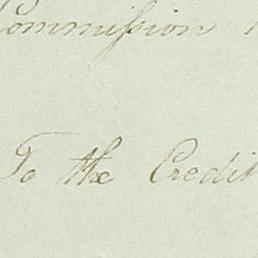 Commiſsion
To the Credit